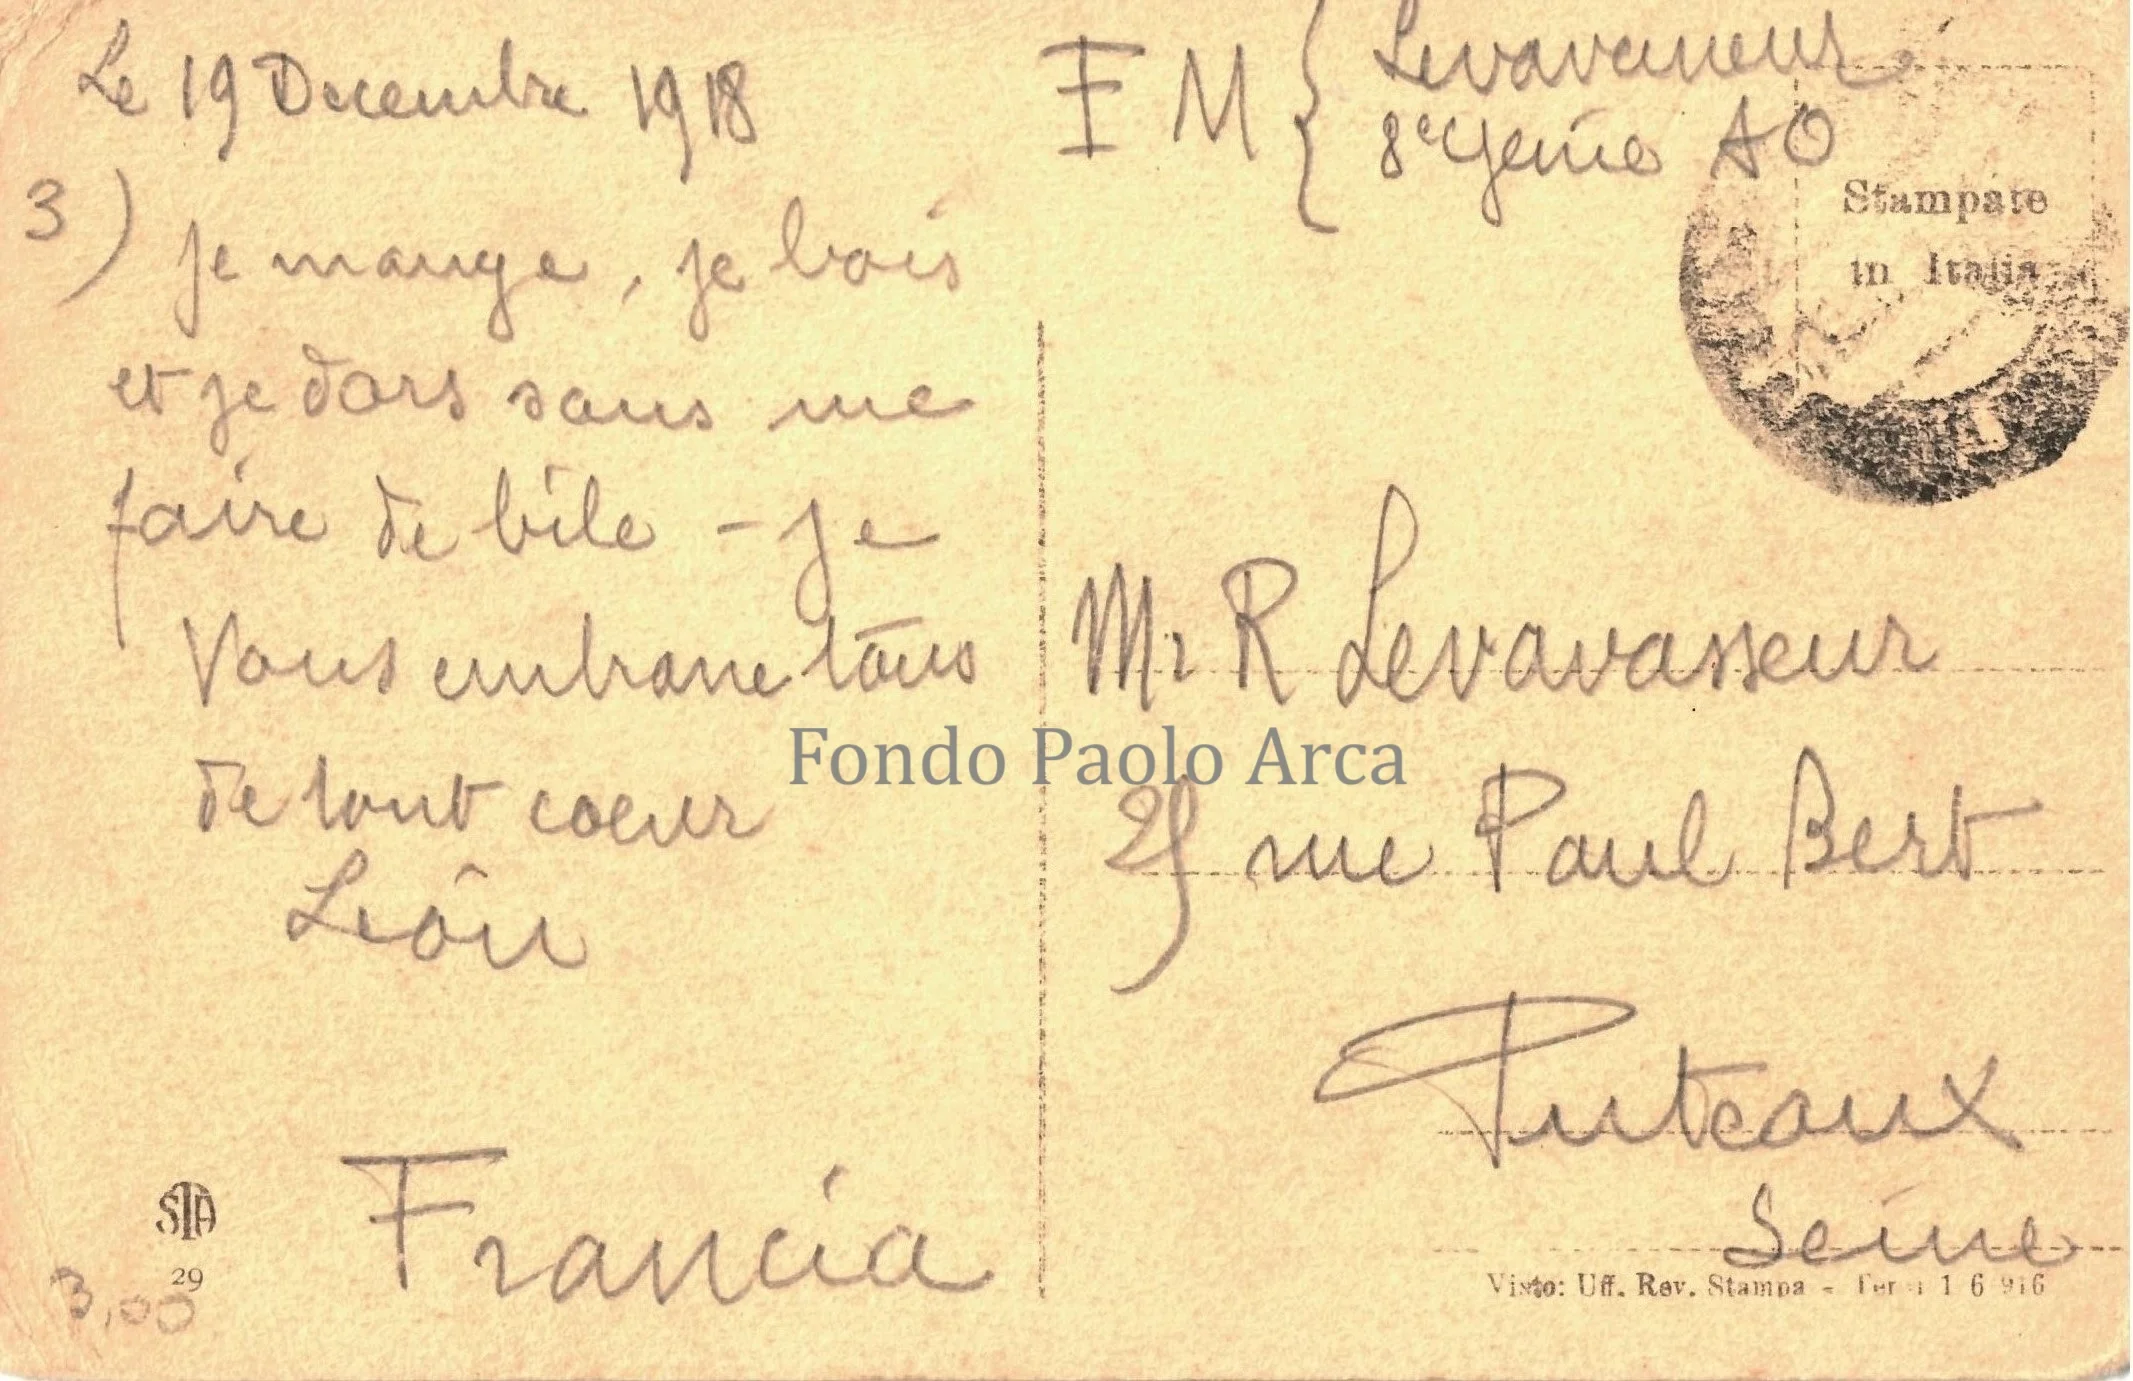 Le 19 Decembre 1918
3) je mange, je bois
et je dors sans me
faire de bile - je
vous embrasse tous
de tout coeur
Léon
Francia
STA
29
3,00
F M { Levavasseur
8e Genie AO
Stampate
in Italia
Mr R Levavasseur
25 rue Paul Bert
Puteaux
Seine
Visto: Uff. Rev. Stampa - 1 6 916
Fondo Paolo Arca